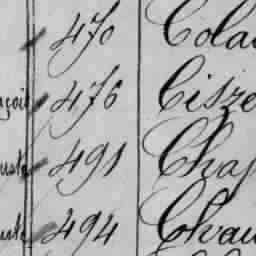 470 Cola
çois 476 Cisze
uste 491 Chap
uste 494 Chau